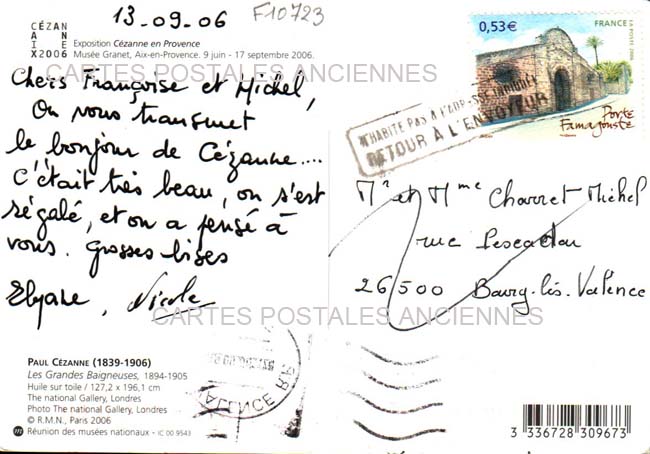 13-09-06
F10723
CÉZAN
A N
I E
X2006
Exposition Cézanne en Provence
Musée Granet, Aix-en-Provence. 9 juin - 17 septembre 2006.
CARTES POSTALES ANCIENNES
Chers Françoise et Michel,
On vous transmet
le bonjour de Cézanne....
C'était très beau, on s'est
régalé, et on a pensé à
vous. Grosses bises
Elyane, Nicole
CARTES POSTALES ANCIENNES
PAUL CÉZANNE (1839-1906)
Les Grandes Baigneuses, 1894-1905
Huile sur toile / 127,2 x 196,1 cm
The national Gallery, Londres
Photo The national Gallery, Londres
© R.M.N., Paris 2006
m Réunion des musées nationaux - IC 00 9543
VALENCE
0,53€
FRANCE
LA POSTE 2006
Porte
Famagouste
N'HABITE PAS A L'ADRESSE INDIQUÉE
RETOUR A L'ENVOYEUR
Mr et Mme Charret Michel
rue
26500 Bourg-lès-Valence
3 336728 309673